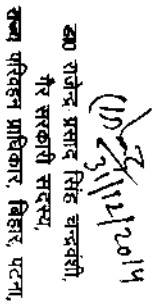 31/12/2014
डा0 राजेन्द्र प्रसाद सिंह चन्द्रवंशी,
गैर सरकारी सदस्य,
राज्य परिवहन प्राधिकार, बिहार, पटना,